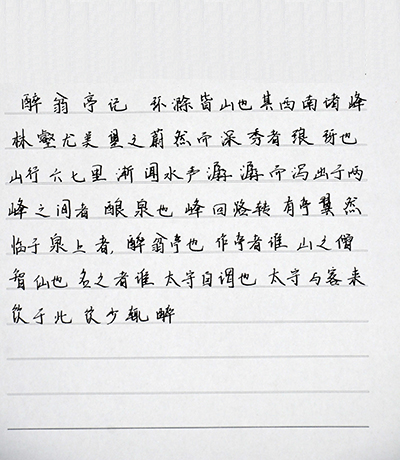 醉翁亭记 环滁皆山也其西南诸峰
林壑尤美望之蔚然而深秀者琅琊也
山行六七里渐闻水声潺潺而泻出于两
峰之间者酿泉也峰回路转有亭翼然
临于泉上者,醉翁亭也作亭者谁山之僧
智仙也名之者谁太守自谓也太守与客来
饮于此饮少辄醉